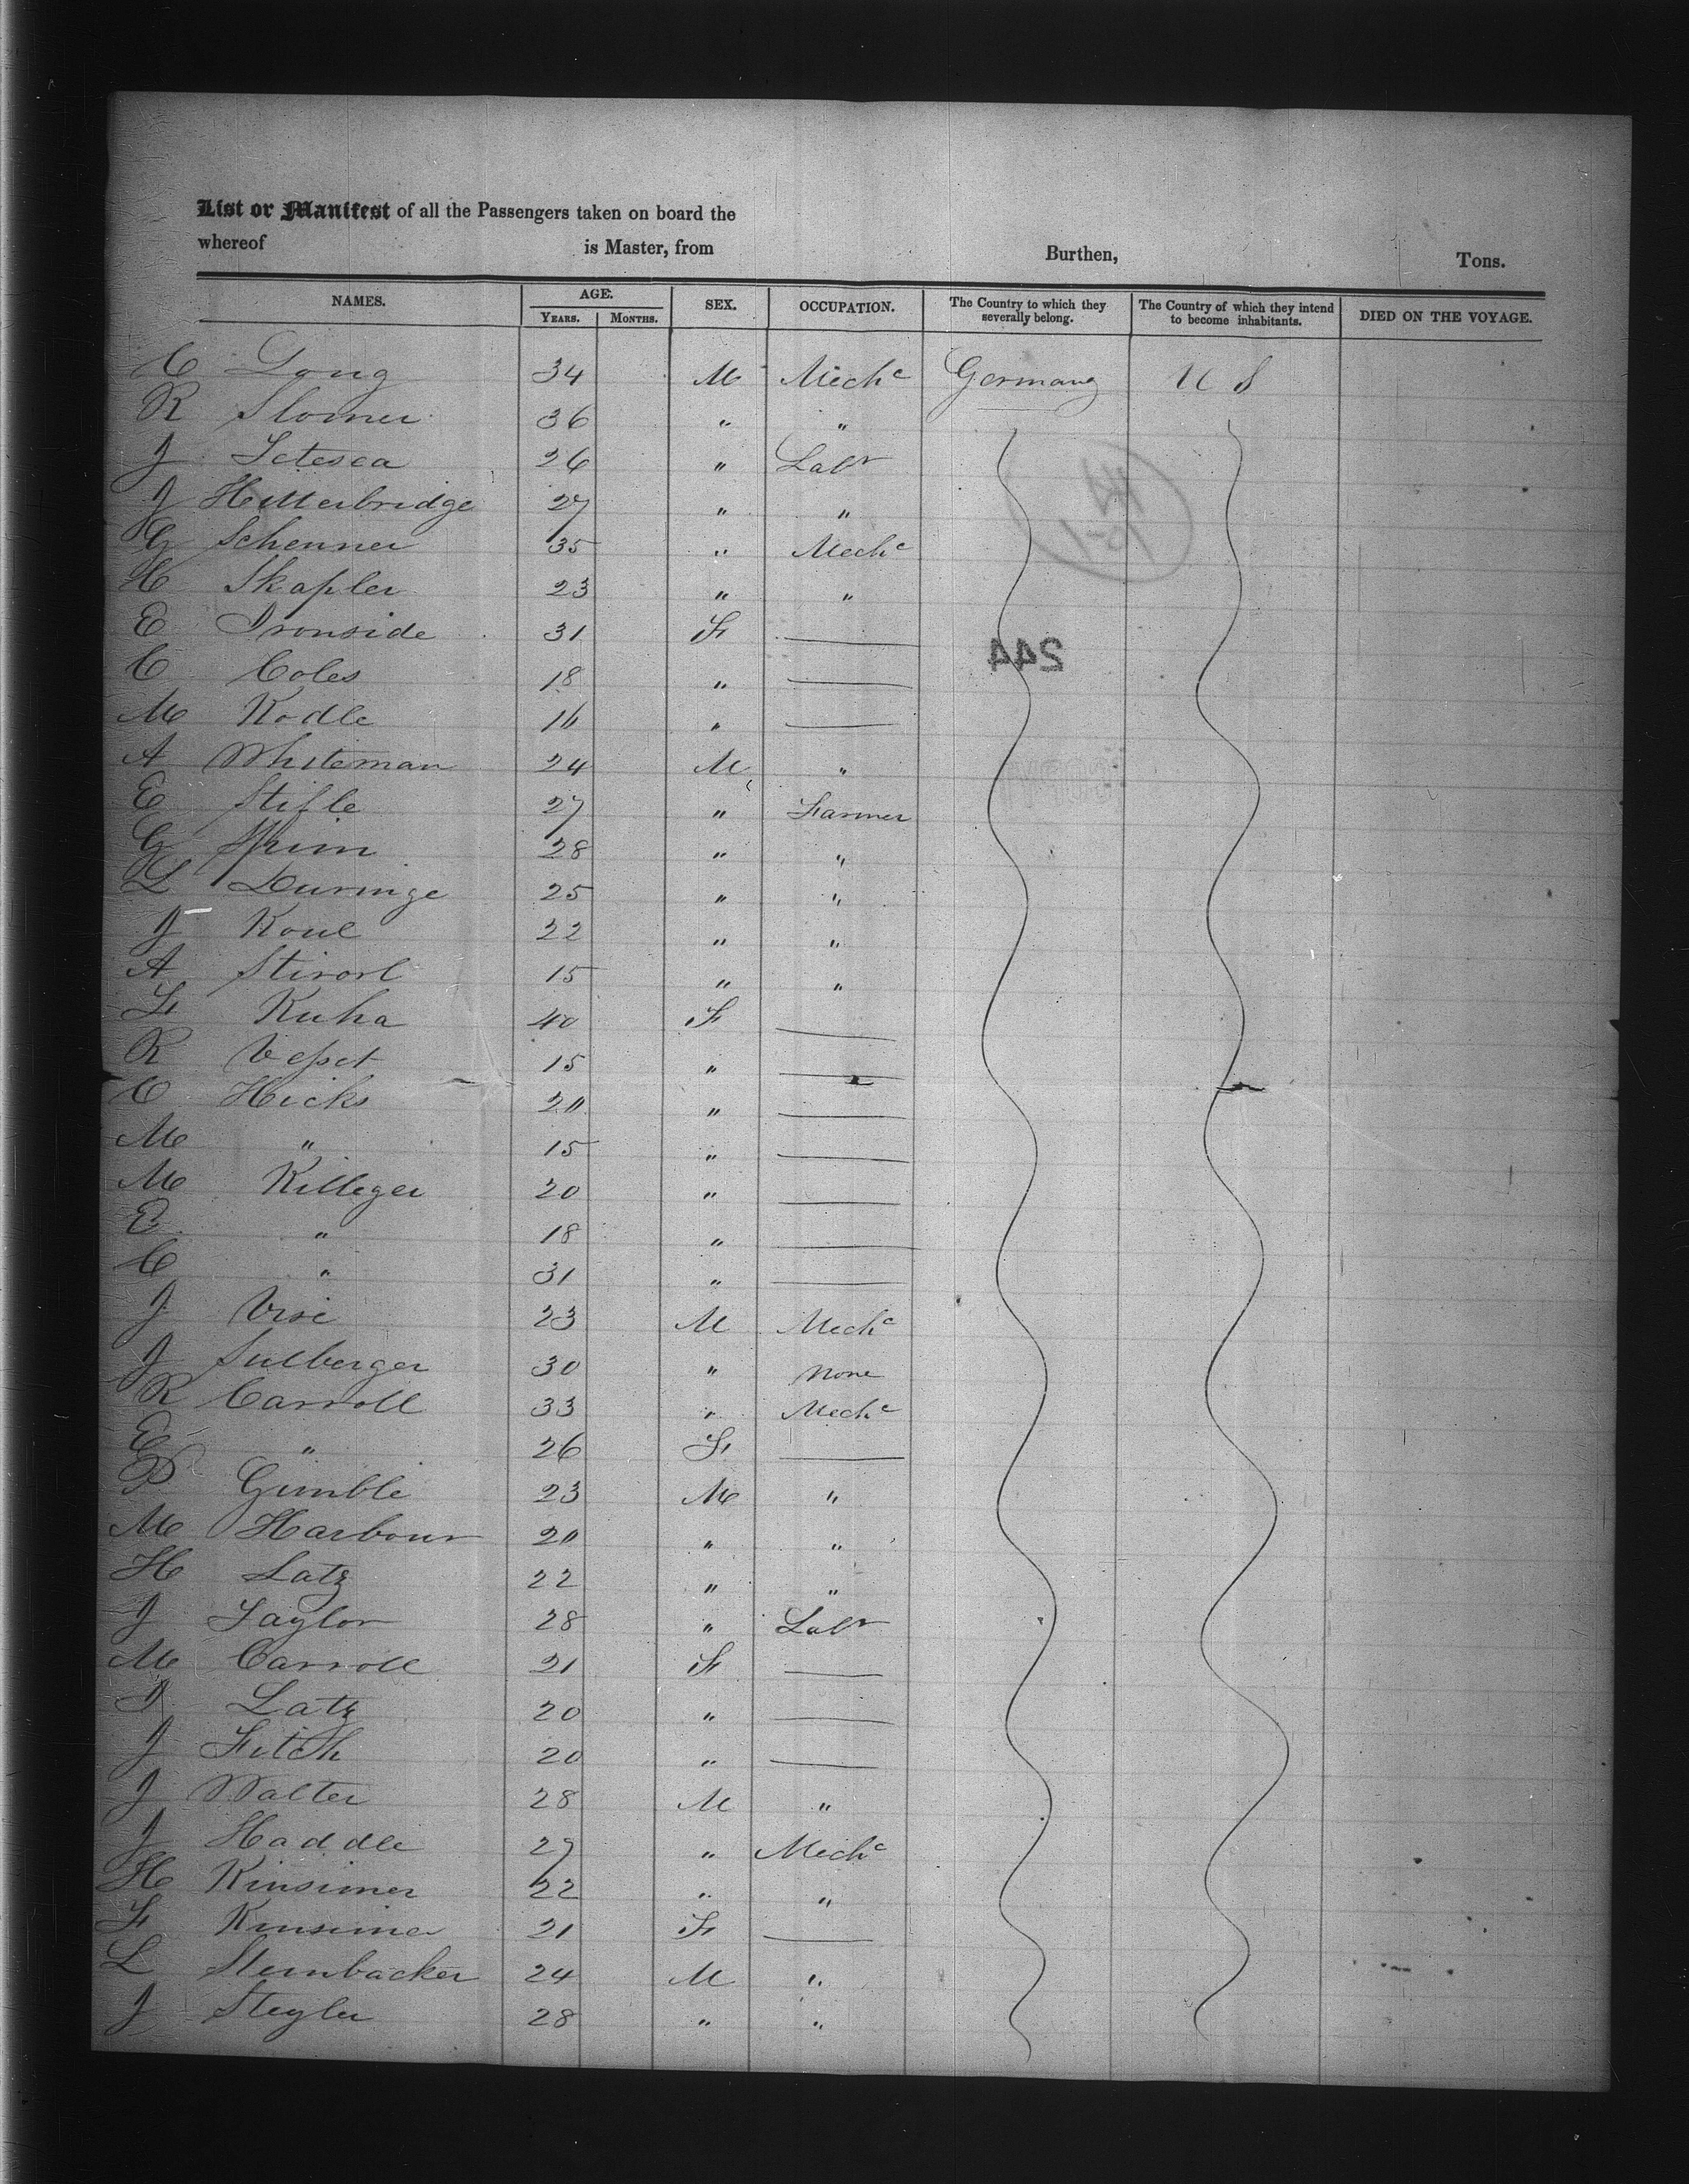 List or Manifest of all the Passengers taken on board the
whereof is Master, from Burthen, Tons.
NAMES. AGE. SEX. OCCUPATION. The Country to which they severally belong. The Country of which they intend to become inhabitants. DIED ON THE VOYAGE.
YEARS. MONTHS.
C Long 34 M Mechc Germany U S
R Slomer 36 " "
J 26 " Labr
J 27 " "
G Schenner 35 " Mechc
H Skapler 23 " "
E Ironside 31 F
C Coles 18 "
M Kodle 16 "
A Whiteman 24 M "
E Stifle 27 " Farmer
G 28 " "
L Duringe 25 " "
J Koul 22 " "
A 15 " "
F Kuha 40 F
R 15 "
C Hicks 20 "
M " 15 "
M Killeger 20 "
E " 18 "
C " 31 "
J 23 M Mechc
J Sulberger 30 " None
R Carroll 33 " Mechc
E " 26 F
P Gimble 23 M "
M Harbour 20 " "
H Latz 22 " "
J Taylor 28 " Labr
M Carroll 21 F
Latz 20 "
J Fitch 20 "
J Walter 28 M "
J Haddle 27 " Mechc
H Kinsimer 22 " "
F Kinsimer 21 F
L Sternbacker 24 M "
J Stegler 28 " "
244